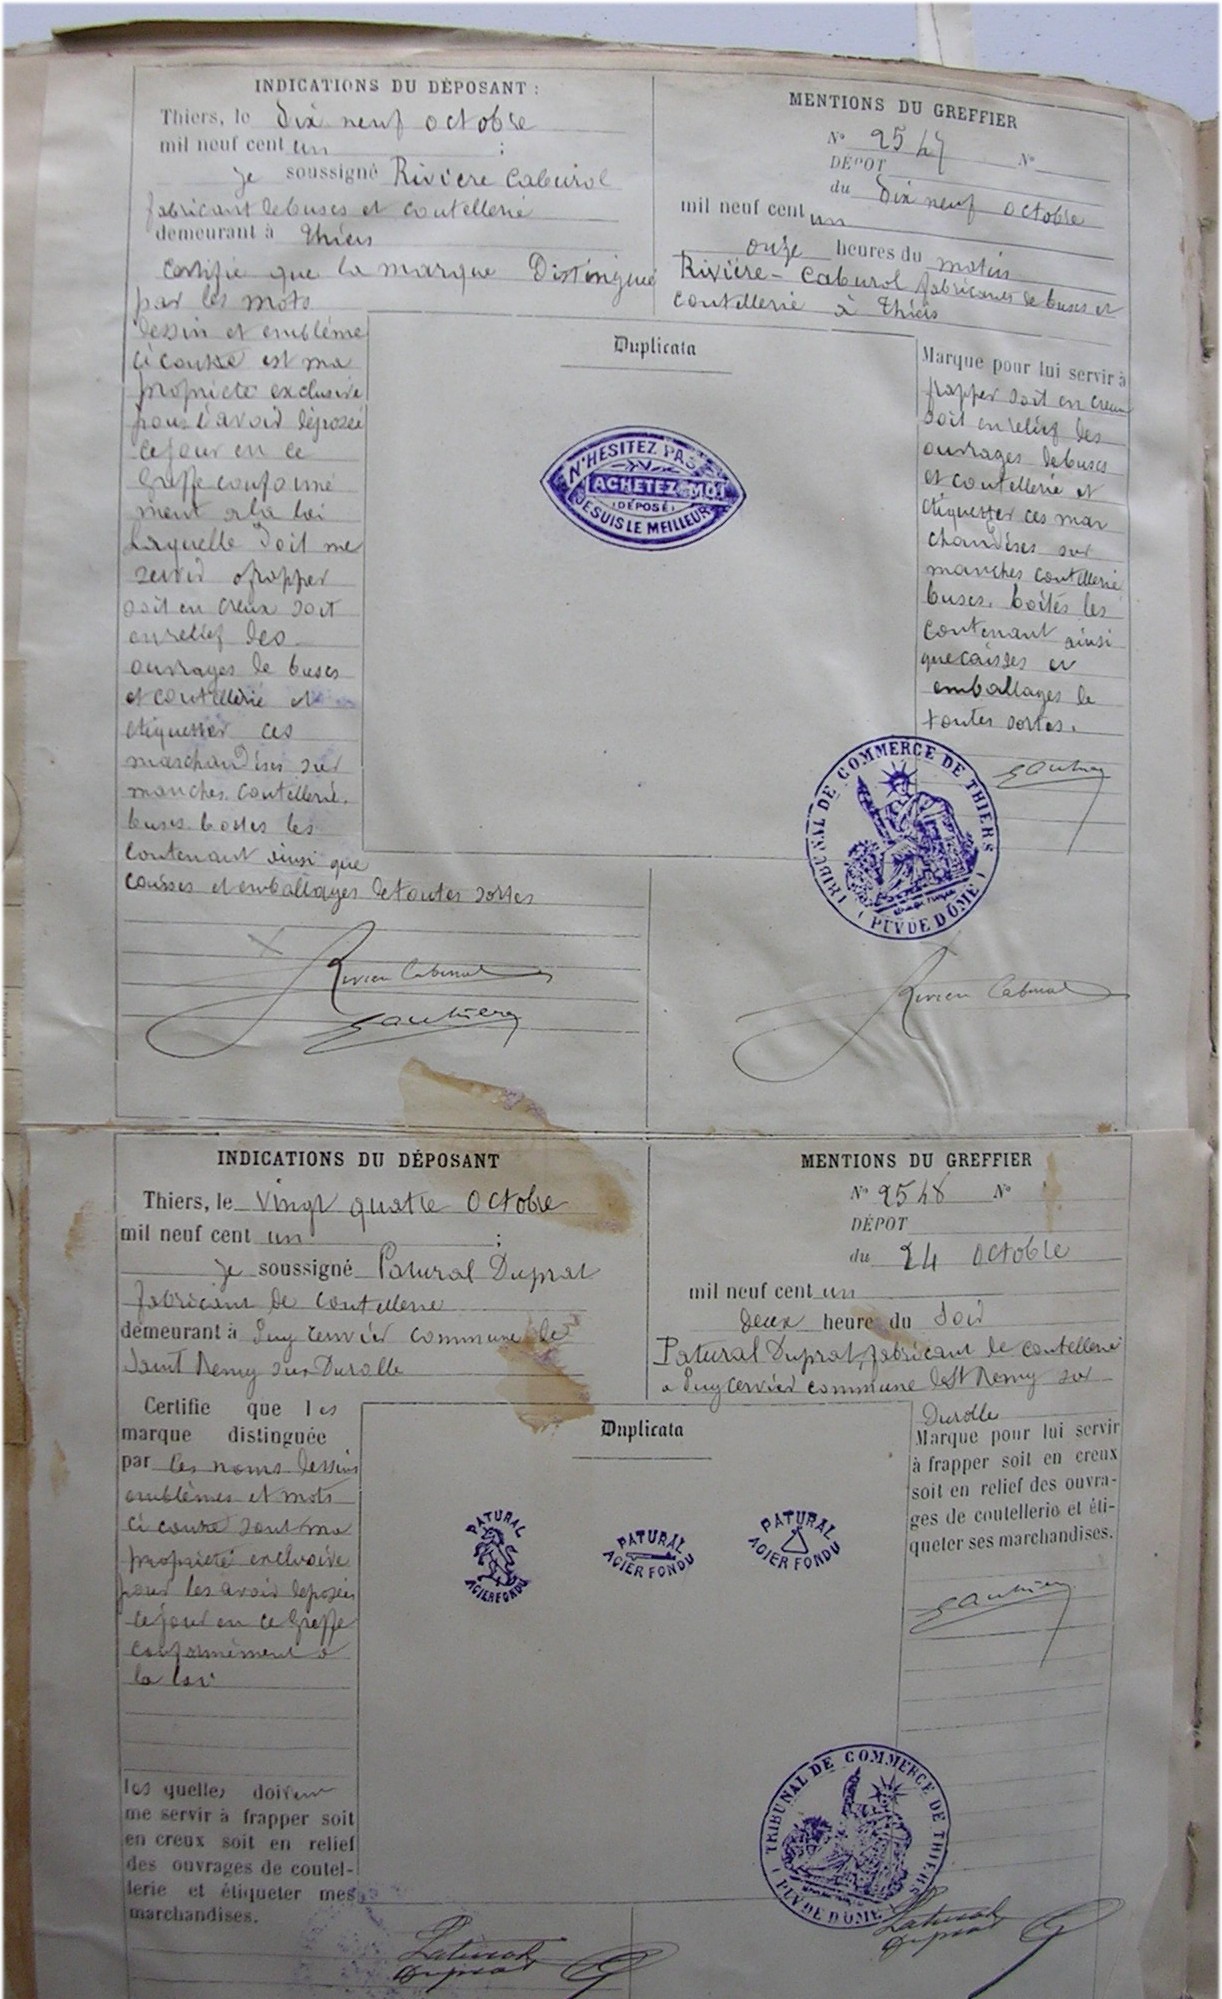 INDICATIONS DU DÉPOSANT :
Thiers, le dix neuf octobre
mil neuf cent un ;
Je soussigné Rivière Caburol
fabricant de buses et coutellerie
demeurant à Thiers
Certifie que la marque Distinguée
par les mots
dessin et emblème
ci contre est ma
propriété exclusive
pour l'avoir déposée
ce jour en ce
Greffe conformé
ment à la loi
Laquelle doit me
servir à frapper
soit en creux soit
en relief des
ouvrages de buses
et coutellerie et
étiquetter ces
marchandises sur
manches coutellerie,
buses. boites les
contenant ainsi que
caisses et emballages de toutes sortes
Rivière Caburol
Gauthier
MENTIONS DU GREFFIER
N° 2547 N°
DÉPOT
du dix neuf octobre
mil neuf cent un
onze heures du matin
Rivière-Caburol fabricant de buses et
coutellerie à Thiers
Duplicata
N'HESITEZ PAS
ACHETEZ-MOI
(DÉPOSÉ)
JE SUIS LE MEILLEUR
Marque pour lui servir à
frapper soit en creux
soit en relief des
ouvrages de buses
et coutellerie et
étiquetter ces mar
chandises sur
manches coutellerie
buses. boîtes les
contenant ainsi
que caisses et
emballages de
toutes sortes.
Gauthier
TRIBUNAL DE COMMERCE DE THIERS
(PUY DE DÔME)
Rivière Caburol
INDICATIONS DU DÉPOSANT
Thiers, le vingt quatre Octobre
mil neuf cent un ;
Je soussigné Patural Duprat
fabricant de coutellerie
demeurant à Puy Cervier commune de
Saint Remy sur Durolle
Certifie que les
marque distinguée
par les noms dessins
emblèmes et mots
ci contre sont ma
propriété exclusive
pour les avoir déposées
ce jour en ce Greffe
conformément à
la loi
les quelles doivent
me servir à frapper soit
en creux soit en relief
des ouvrages de coutel-
lerie et étiqueter mes
marchandises.
Patural
Duprat
MENTIONS DU GREFFIER
N° 2548 N°
DÉPOT
du 24 octobre
mil neuf cent un
deux heure du soir
Patural Duprat, fabricant de coutellerie
a Puy Cervier commune de St Remy sur
Durolle
Duplicata
PATURAL
ACIER FONDU
PATURAL
ACIER FONDU
PATURAL
ACIER FONDU
Marque pour lui servir
à frapper soit en creux
soit en relief des ouvra-
ges de coutellerie et éti-
queter ses marchandises.
Gauthier
TRIBUNAL DE COMMERCE DE THIERS
(PUY DE DÔME)
Patural
Duprat